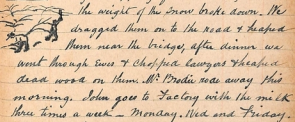 the weight of the snow broke down. We
dragged them on to the road & heaped
them near the bridge, after dinner we
went through Ewes & chopped Lawyers & heaped
dead wood on them. Mr Brodie rode away this
morning. John goes to Factory with the milk
three times a week – Monday, Wed and Friday.